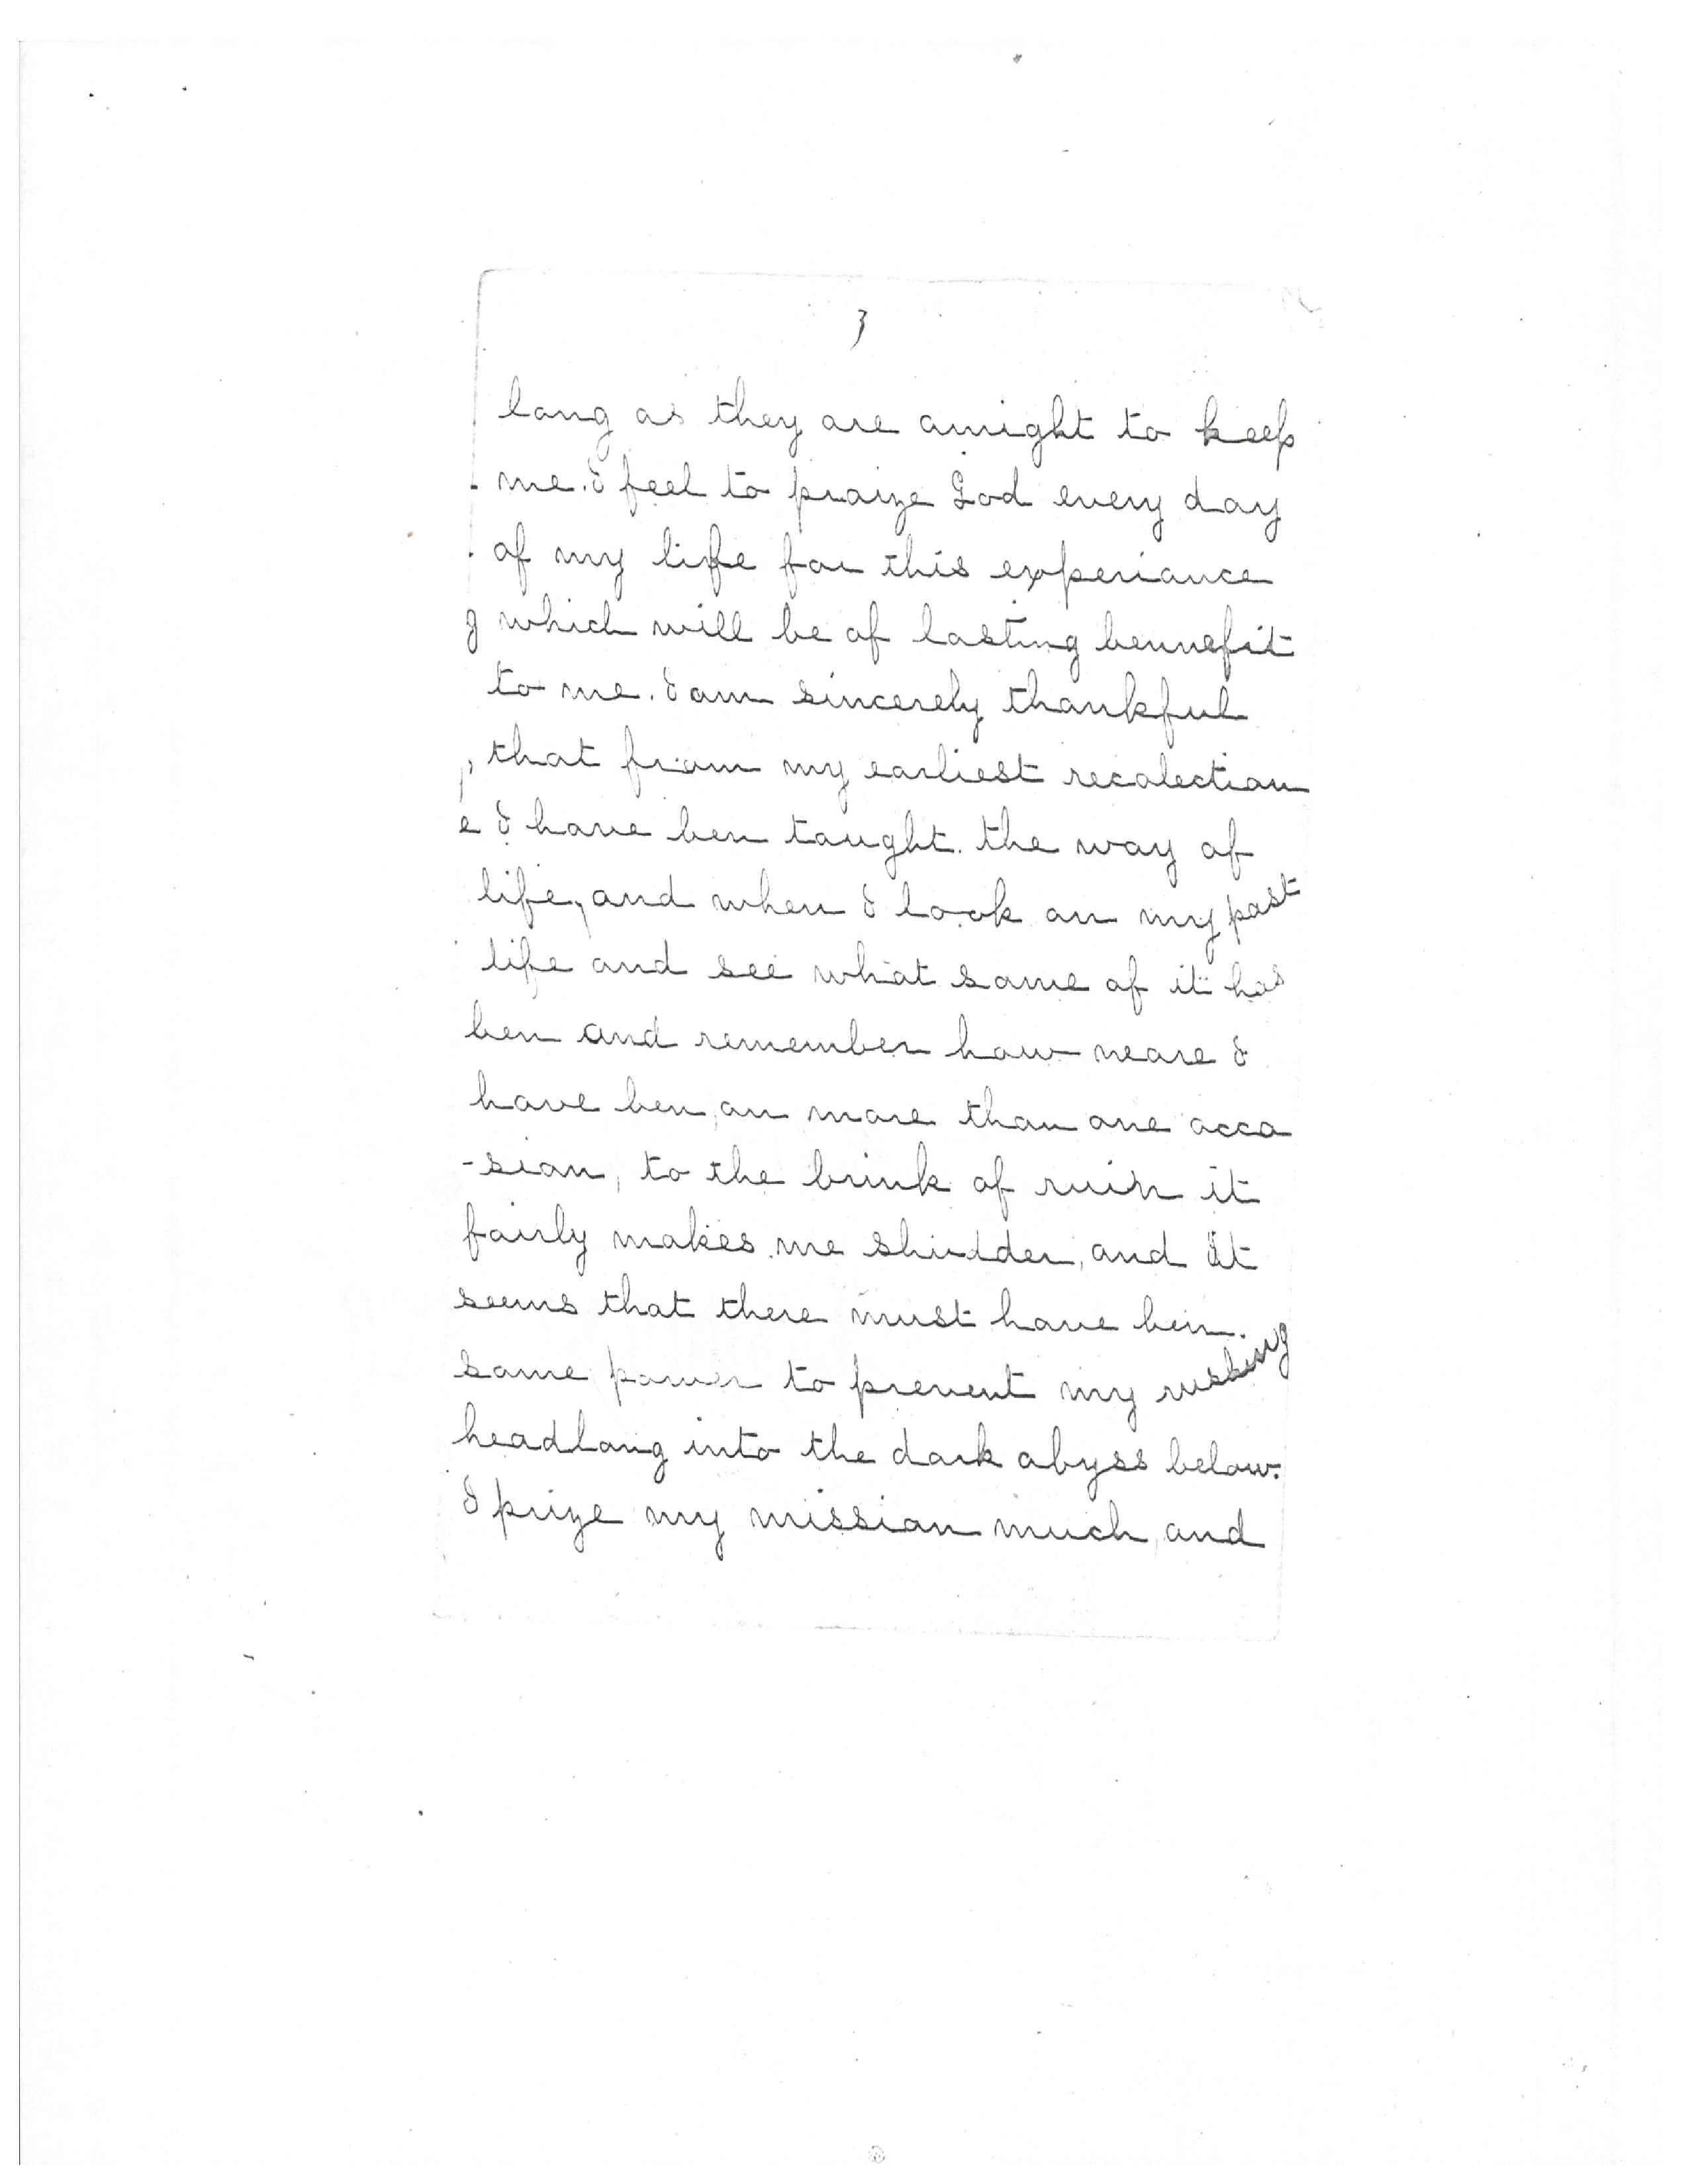 3
long as they are amight to keep
me. I feel to praize God every day
of my life for this experiance
which will be of lasting bennefit
to me. I am sincerely thankful
that from my earliest recolection
I have ben taught the way of
life, and when I look on my past
life and see what some of it has
ben and remember how neare I
have ben, on more than one occa
-sion, to the brink of ruin it
fairly makes me shudder, and It
seems that there must have ben
some power to prevent my rushing
headlong into the dark abyss below.
I prize my mission much, and